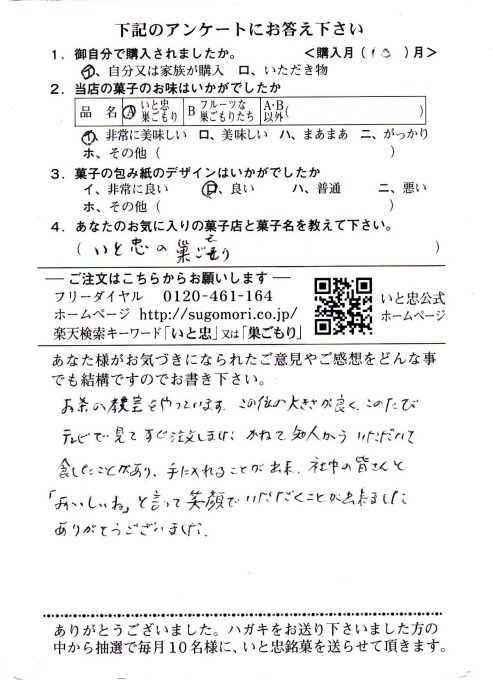 下記のアンケートにお答え下さい
1．御自分で購入されましたか。 ＜購入月（10）月＞
イ、自分又は家族が購入 ロ、いただき物
2．当店の菓子のお味はいかがでしたか
品 名 A いと忠巣ごもり B フルーツな巣ごもりたち A・B以外（ ）
イ、非常に美味しい ロ、美味しい ハ、まあまあ ニ、がっかり
ホ、その他（ ）
3．菓子の包み紙のデザインはいかがでしたか
イ、非常に良い ロ、良い ハ、普通 ニ、悪い
ホ、その他（ ）
4．あなたのお気に入りの菓子店と菓子名を教えて下さい。
（ いと忠の巣ごもり ）
― ご注文はこちらからお願いします ―
フリーダイヤル 0120-461-164
ホームページ http://sugomori.co.jp/
楽天検索キーワード「いと忠」又は「巣ごもり」
いと忠公式
ホームページ
あなた様がお気づきになられたご意見やご感想をどんな事
でも結構ですのでお書き下さい。
お茶の教室をやっています。この位の大きさが良く、このたび
テレビで見てすぐ注文しました かねて知人からいただいて
食したことがあり、手に入れることが出来、社中の皆さんと
「おいしいね」と言って笑顔でいただくことが出来ました
ありがとうございました。
ありがとうございました。ハガキをお送り下さいました方の
中から抽選で毎月10名様に、いと忠銘菓を送らせて頂きます。